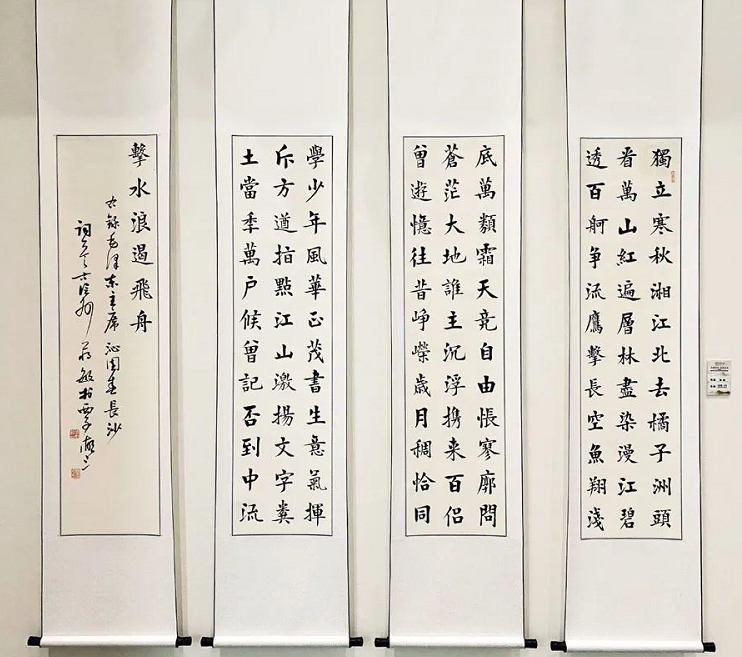 獨立寒秋湘江北去橘子洲頭
看萬山紅遍層林盡染漫江碧
透百舸争流鷹擊長空魚翔淺
底萬類霜天竞自由悵寥廓問
蒼茫大地誰主沉浮携来百侣
曾遊憶往昔崢嶸歲月稠恰同
學少年風華正茂書生意氣揮
斥方遒指點江山激揚文字糞
土當年萬户候曾記否到中流
擊水浪遏飛舟
右錄毛泽东主席沁園春長沙
詞